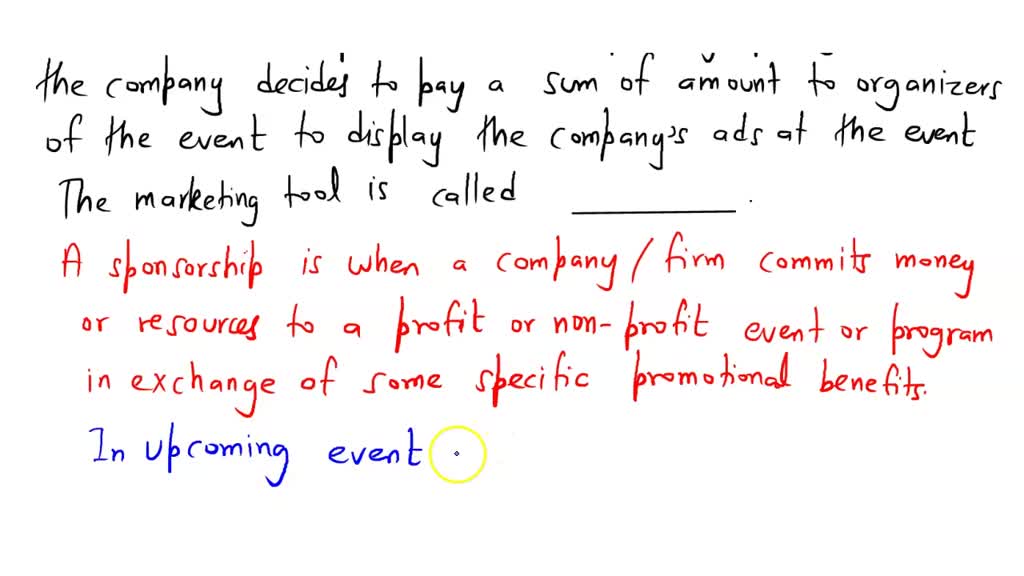 the company decides to pay a sum of amount to organizers
of the event to display the company's ads at the event
The marketing tool is called ________.
A sponsorship is when a company / firm commits money
or resources to a profit or non-profit event or program
in exchange of some specific promotional benefits.
In upcoming event